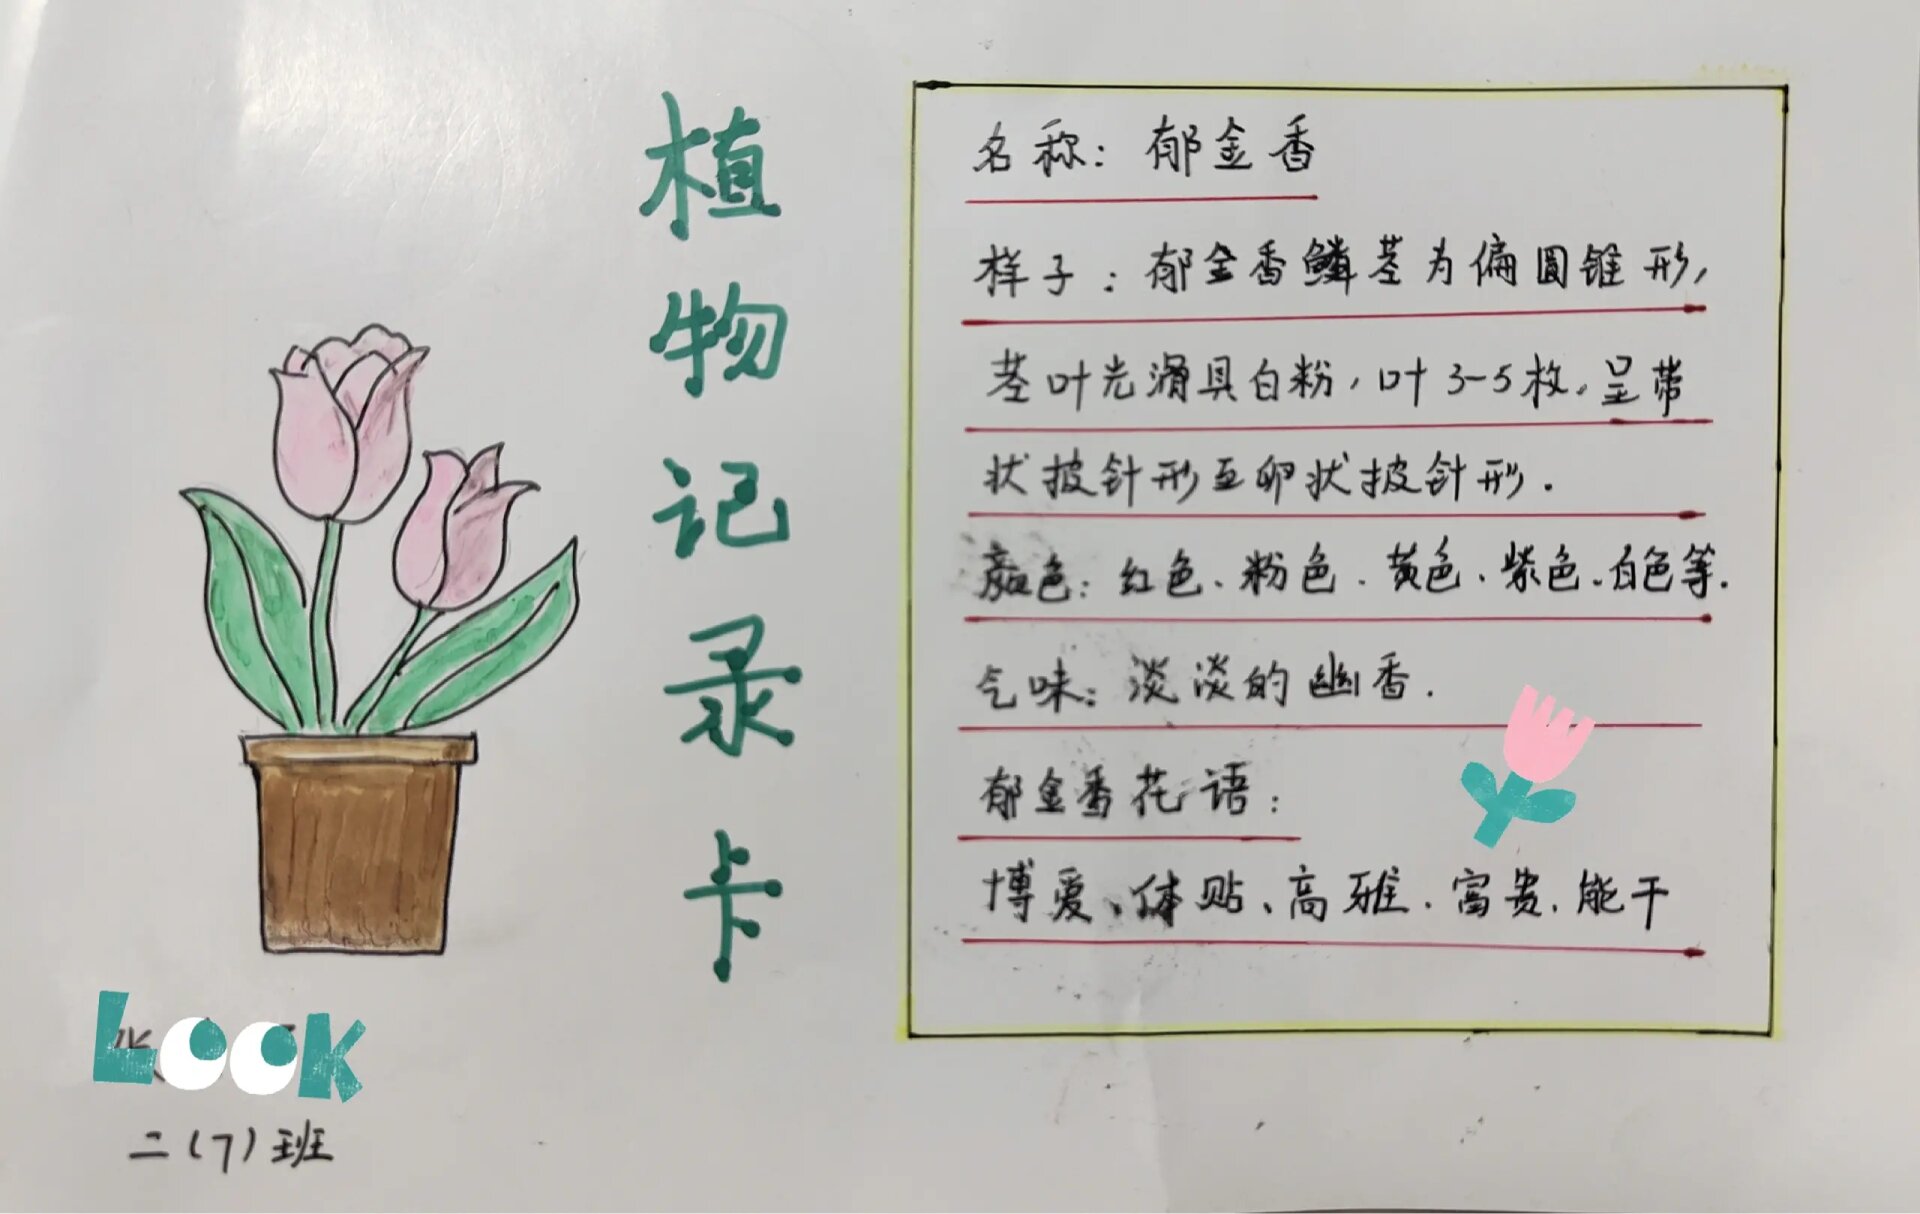 植物记录卡
名称：郁金香
样子：郁金香鳞茎为偏圆锥形，
茎叶光滑具白粉，叶3-5枚，呈带
状披针形至卵状披针形.
颜色：红色、粉色、黄色、紫色、白色等.
气味：淡淡的幽香.
郁金香花语：
博爱、体贴、高雅、富贵、能干
LOOK
二(7)班